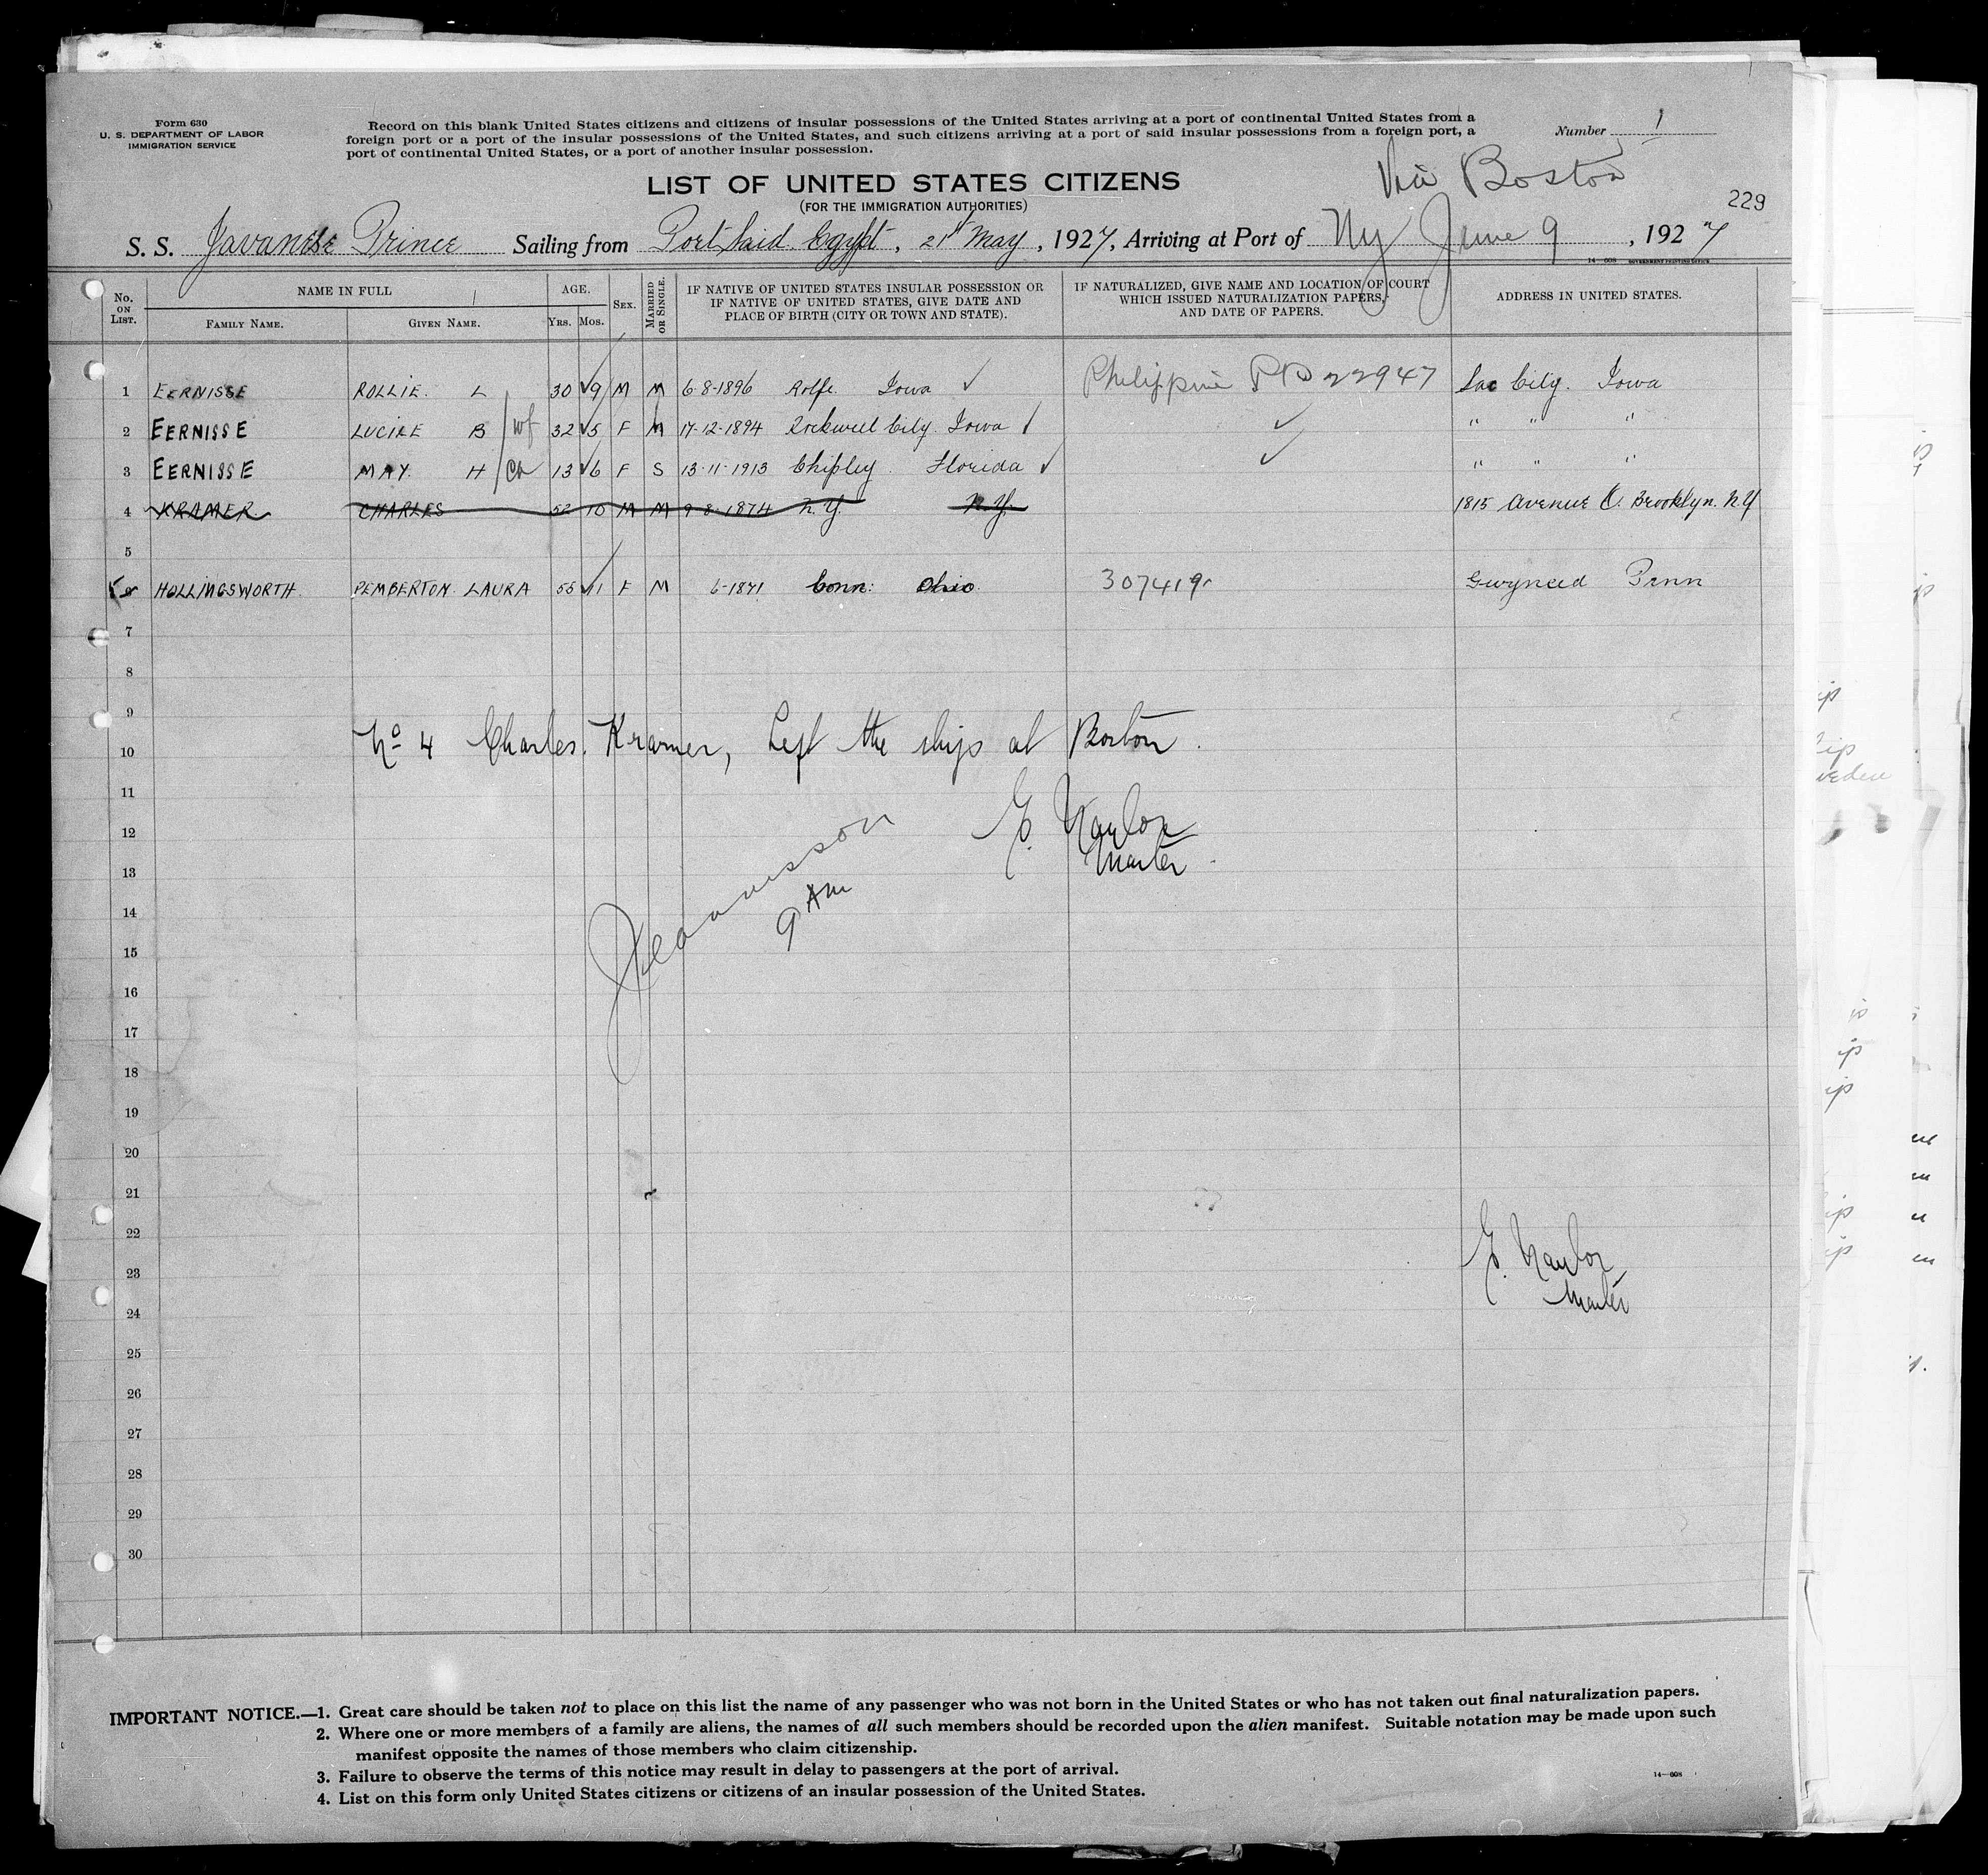 Form 630
U. S. DEPARTMENT OF LABOR
IMMIGRATION SERVICE
Record on this blank United States citizens and citizens of insular possessions of the United States arriving at a port of continental United States from a
foreign port or a port of the insular possessions of the United States, and such citizens arriving at a port of said insular possessions from a foreign port, a
port of continental United States, or a port of another insular possession.
Number 1
Via Boston
LIST OF UNITED STATES CITIZENS
(FOR THE IMMIGRATION AUTHORITIES)
229
S. S. Javanese Prince Sailing from Port Said Egypt, 21st May, 1927, Arriving at Port of Ny June 9, 1927
14—608 GOVERNMENT PRINTING OFFICE
No. ON LIST. NAME IN FULL FAMILY NAME. GIVEN NAME. AGE. YRS. MOS. SEX. MARRIED OR SINGLE. IF NATIVE OF UNITED STATES INSULAR POSSESSION OR IF NATIVE OF UNITED STATES, GIVE DATE AND PLACE OF BIRTH (CITY OR TOWN AND STATE). IF NATURALIZED, GIVE NAME AND LOCATION OF COURT WHICH ISSUED NATURALIZATION PAPERS, AND DATE OF PAPERS. ADDRESS IN UNITED STATES.
1 EERNISSE ROLLIE. L 30 9 M M 6-8-1896 Rolfe. Iowa Philippine PP 22947 Sac City. Iowa
2 EERNISSE LUCILE B wf 32 5 F M 17-12-1894 Rockwell City. Iowa " " "
3 EERNISSE MAY. H Ch 13 6 F S 13-11-1913 Chipley Florida " " "
4 KRAMER CHARLES 52 10 M M 9-8-1874 N.Y. N.Y. 1815 Avenue O. Brooklyn. N.Y
5
HOLLINGSWORTH. PEMBERTON. LAURA 55 11 F M 6-1871 Conn: Ohio. 307419 Gwynedd Penn
7
8
9
No 4 Charles. Kramer, Left the ship at Boston.
10
11
12
G. Naylor
Master.
13
9 AM
14
15
16
17
18
19
20
21
22
G. Naylor
23
Master
24
25
26
27
28
29
30
IMPORTANT NOTICE.—1. Great care should be taken not to place on this list the name of any passenger who was not born in the United States or who has not taken out final naturalization papers.
2. Where one or more members of a family are aliens, the names of all such members should be recorded upon the alien manifest. Suitable notation may be made upon such
manifest opposite the names of those members who claim citizenship.
3. Failure to observe the terms of this notice may result in delay to passengers at the port of arrival.
4. List on this form only United States citizens or citizens of an insular possession of the United States.
14—608